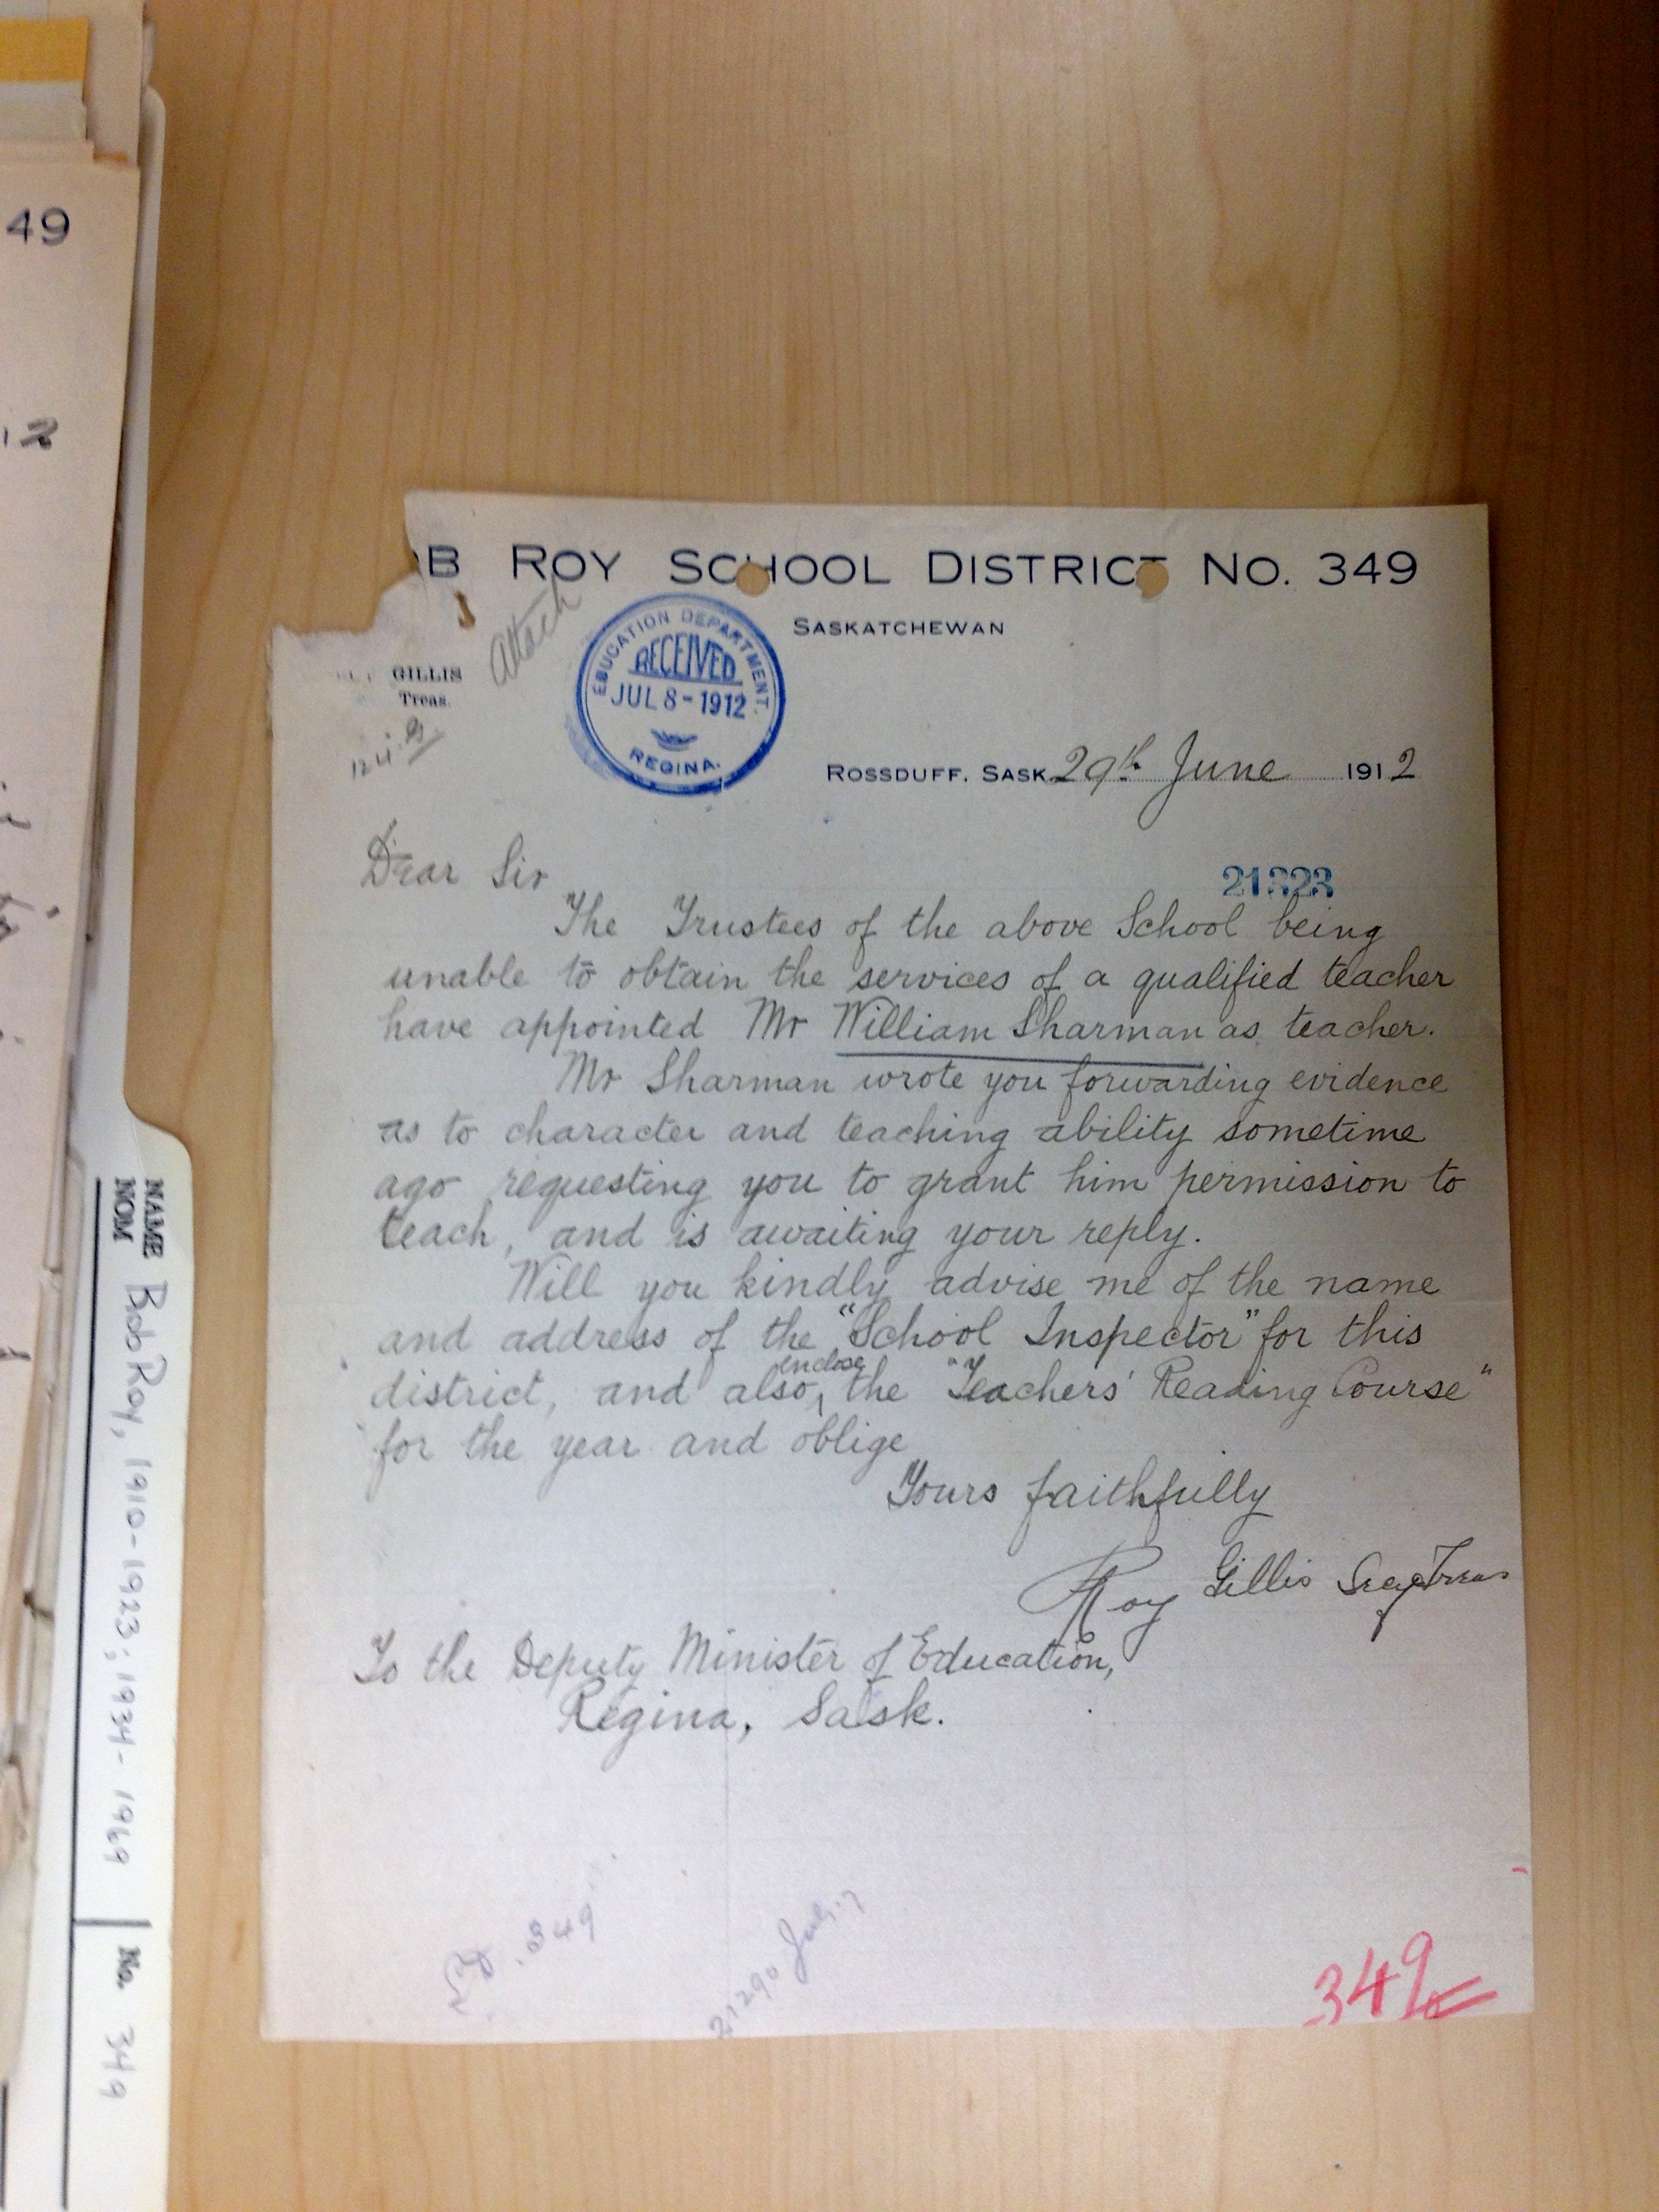 49
12
OB ROY SCHOOL DISTRICT NO. 349
SASKATCHEWAN
GILLIS
Treas.
Attach
EDUCATION DEPARTMENT.
RECEIVED
JUL 8 - 1912
REGINA.
ROSSDUFF, SASK 29th June 1912
21323
Dear Sir
The Trustees of the above School being
unable to obtain the services of a qualified teacher
have appointed Mr William Sharman as teacher.
Mr Sharman wrote you forwarding evidence
as to character and teaching ability sometime
ago requesting you to grant him permission to
teach, and is awaiting your reply.
Will you kindly advise me of the name
and address of the "School Inspector" for this
district, and also enclose the "Teachers' Reading Course"
for the year and oblige
Yours faithfully
Roy Gillis Secy Treas
To the Deputy Minister of Education,
Regina, Sask.
SD. 349
21290 July 17
349
NAME
NOM
Bob Roy, 1910-1923; 1934-1969
No. 349